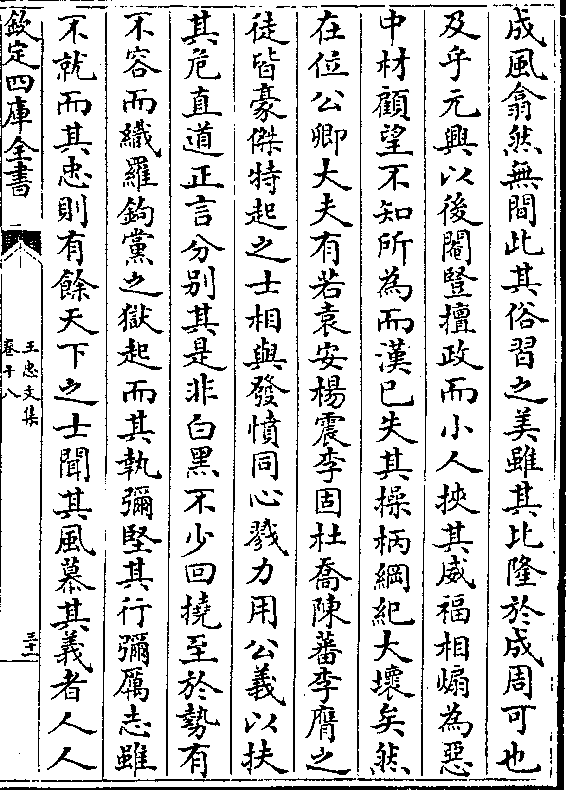 成風翕然無間此其俗習之美雖其比隆於成周可也
及乎元興以後閹豎擅政而小人挾其威福相煽為惡
中材顧望不知所為而漢已失其操柄綱紀大壞矣然
在位公卿大夫有若袁安楊震李固杜喬陳蕃李膺之
徒皆豪傑特起之士相與發憤同心戮力用公義以扶
其危直道正言分别其是非白黑不少回撓至於勢有
不容而織羅鉤黨之獄起而其執彌堅其行彌厲志雖
不就而其忠則有餘天下之士聞其風慕其義者人人
欽定四庫全書
王忠文集
卷十八
三十一